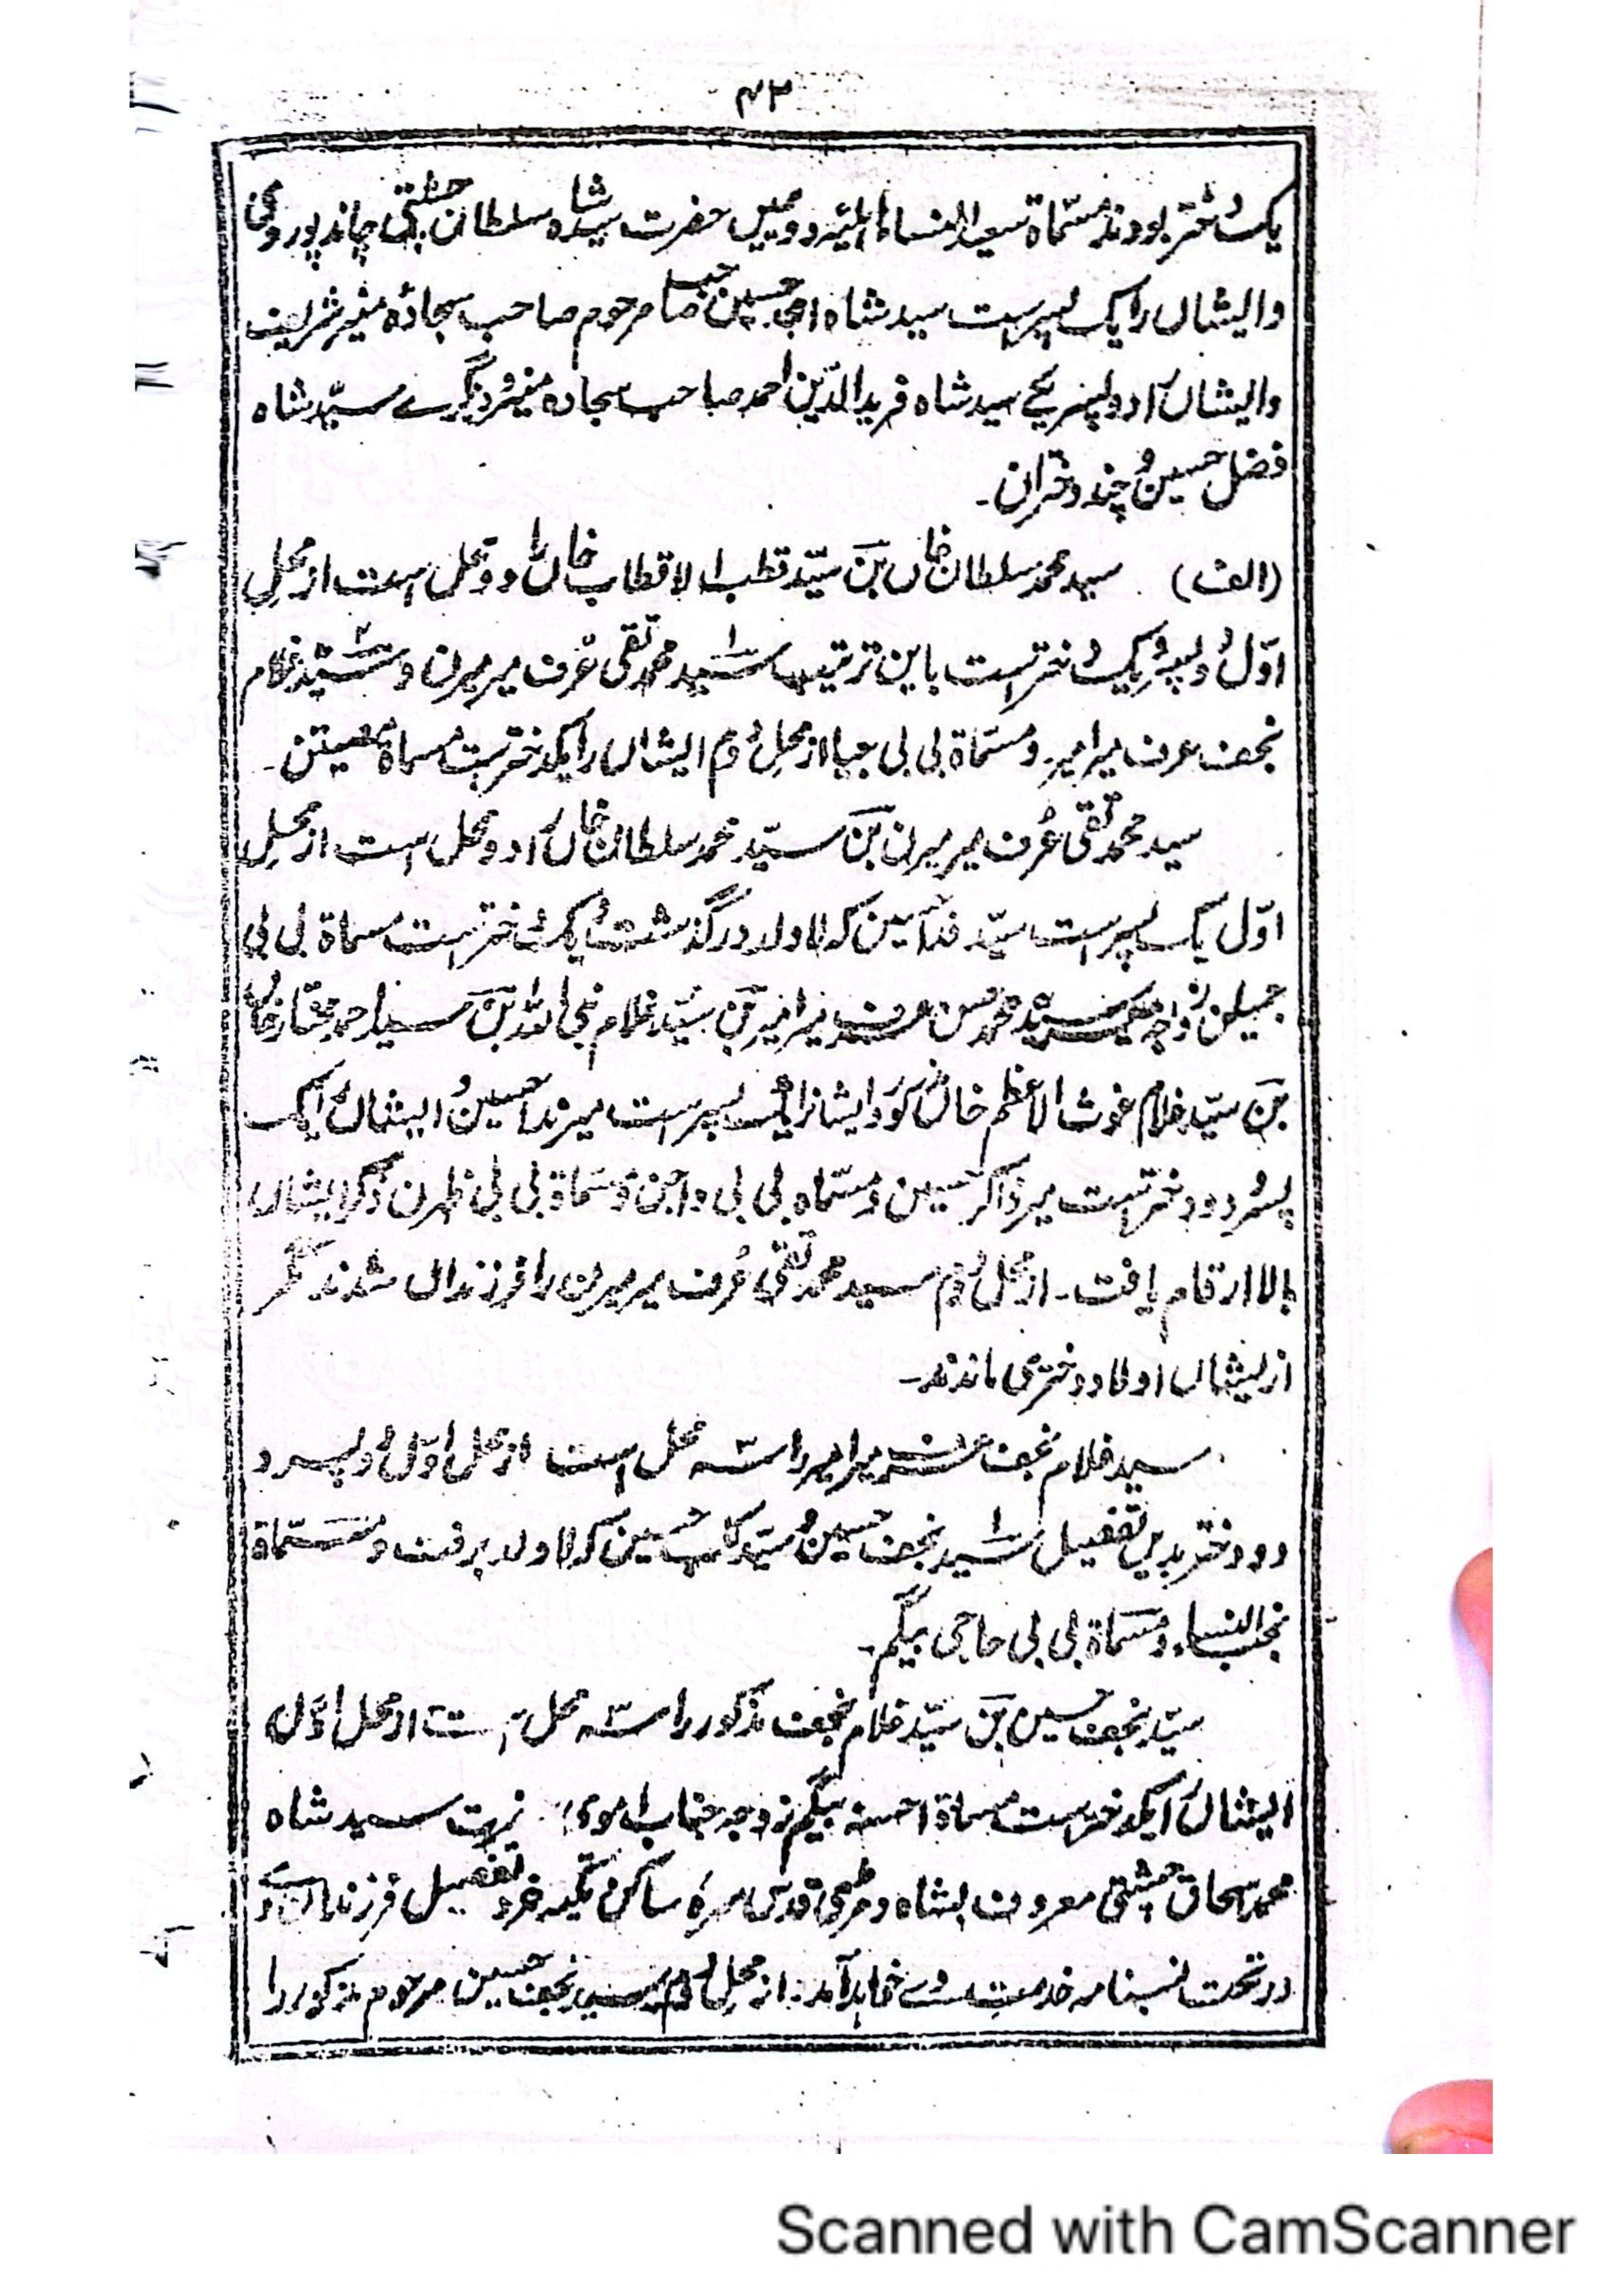 ۴۲
یک دختر بودند مسماة سعید النساء اہلیہ دومیں حضرت سید شاہ سلطان چشتی چاندپوروی
وایشاں را یک پسر است سید شاہ امجد حسین صاحب مرحوم صاحب سجادہ منیر شریف
وایشاں را دو پسر یکے سید شاہ فرید الدین احمد صاحب سجادہ منیر و دیگرے سید شاہ
فضل حسین و چند دختران۔
(الف) سید محمد سلطان خاں بن سید قطب الاقطاب خاں را دو محل است از محل
اول دو پسر و یک دختر است باین ترتیب سید محمد تقی عرف میر میرن و سید غلام
نجف عرف میر امیر و مسماة بی بی از محل دوم ایشاں را یکدختر است مسماة
سید محمد تقی عرف میر میرن بن سید محمد سلطان خاں را دو محل است از محل
اول یک پسر است سید فدا حسین کہ لاولد درگذشت و یک دختر است مسماة بی بی
جمیلن زوجہ سید محمد حسن عرف بن سید غلام نبی اللہ بن سید احمد مختار خاں
بن سید غلام غوث الاعظم خاں مذکور و ایشانرا یک پسر است میر فدا حسین و ایشاں را یک
پسر و دو دختر است میر ذاکر حسین و مسماة بی بی و مسماة بی بی ظہرن ذکر ایشاں
بالا ارقام یافت۔ از محل دوم سید محمد تقی عرف میر میرن را فرزنداں شدند مگر
از ایشاں اولاد دختری ماندند۔
سید غلام نجف عرف میر امیر را سہ محل است از محل اول دو پسر و
دو دختر بدیں تفصیل سید نجف حسین و سید کلب حسین کہ لاولد برفت و مسماة
نجیب النساء و مسماة بی بی حاجی بیگم۔
سید نجف حسین بن سید غلام نجف مذکور را سہ محل است از محل اول
ایشاں را یکدختر است مسماة احسنہ بیگم زوجہ جناب سید شاہ
محمد اسحاق چشتی معروف بشاہ قدس سرہ ساکن تکیہ تفصیل فرزندان وے
در تحت نسبنامہ خدمت وے خواہد آمد۔ از محل دوم سید نجف حسین مرحوم مذکور را
Scanned with CamScanner